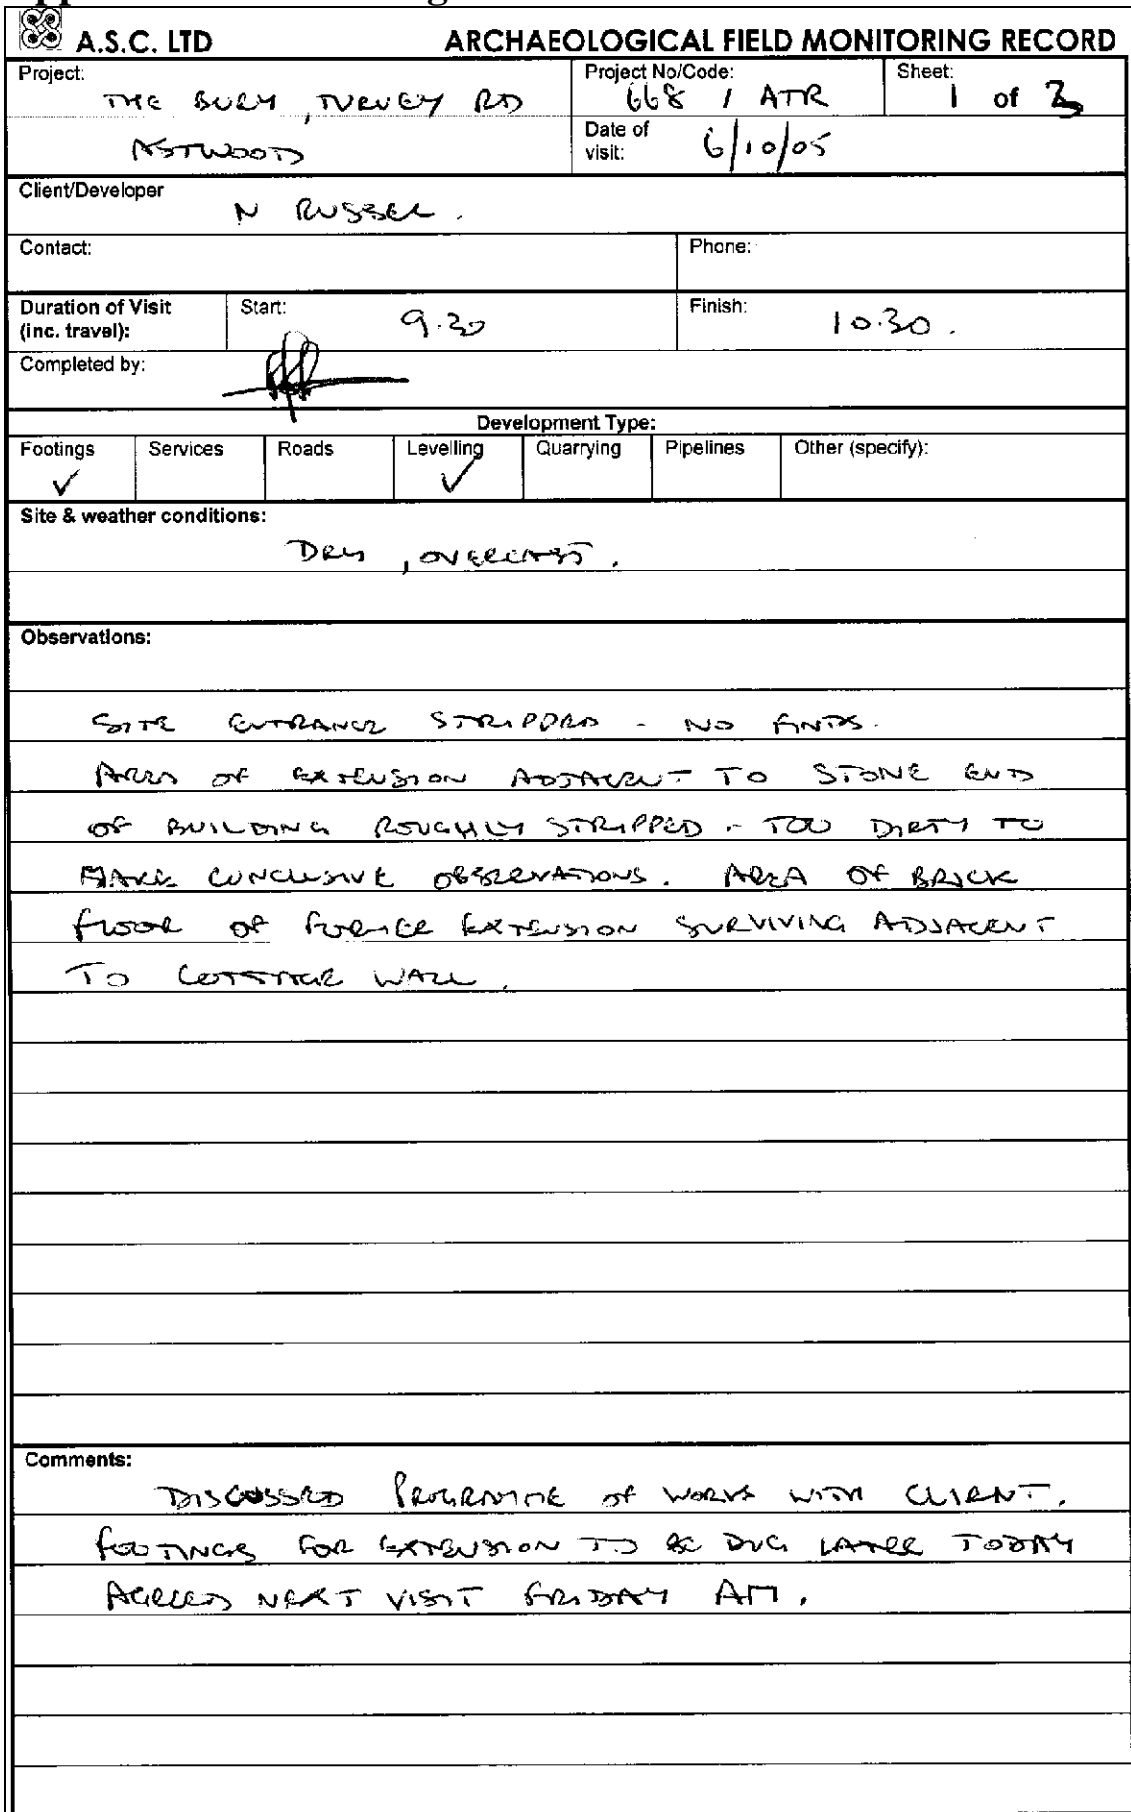 A.S.C. LTD ARCHAEOLOGICAL FIELD MONITORING RECORD
Project: THE BURY, TURVEY RD
ASTWOOD
Project No/Code: 668 / ATR
Sheet: 1 of 3
Date of visit: 6/10/05
Client/Developer N RUSSEL.
Contact:
Phone:
Duration of Visit (inc. travel):
Start: 9.30
Finish: 10.30.
Completed by:
Development Type:
Footings ✓ Services Roads Levelling ✓ Quarrying Pipelines Other (specify):
Site & weather conditions:
DRY, OVERCAST.
Observations:
SITE ENTRANCE STRIPPED - NO FINDS.
AREA OF EXTENSION ADJACENT TO STONE END
OF BUILDING ROUGHLY STRIPPED - TOO DIRTY TO
MAKE CONCLUSIVE OBSERVATIONS. AREA OF BRICK
FLOOR OF FORMER EXTENSION SURVIVING ADJACENT
TO COTTAGE WALL.
Comments:
DISCUSSED PROGRAMME OF WORKS WITH CLIENT.
FOOTINGS FOR EXTENSION TO BE DUG LATER TODAY
AGREED NEXT VISIT FRIDAY AM.